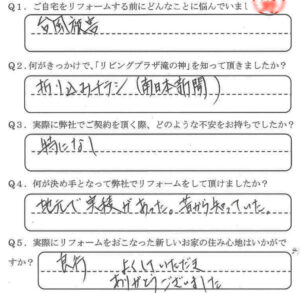 Q1．ご自宅をリフォームする前にどんなことに悩んでいまし
台風被害
Q2．何がきっかけで、「リビングプラザ滝の神」を知って頂きましたか？
折り込みチラシ（南日本新聞）
Q3．実際に弊社でご契約を頂く際、どのような不安をお持ちでしたか？
特になし
Q4．何が決め手となって弊社でリフォームをして頂けましたか？
地元で実積があった。昔から知っていた。
Q5．実際にリフォームをおこなった新しいお家の住み心地はいかがで
すか？
良好　よくしていただき
ありがとうございました